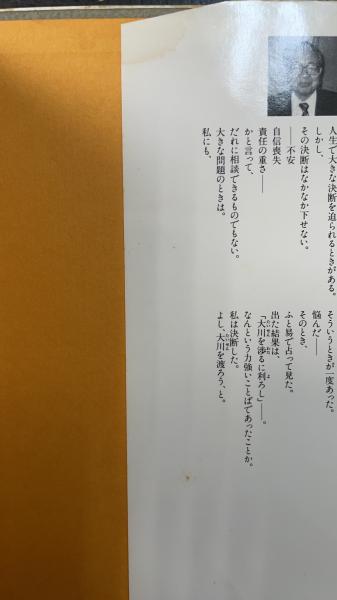 人生で大きな決断を迫られるときがある。
しかし、
その決断はなかなか下せない。
――不安
自信喪失
責任の重さ――
かと言って、
だれに相談できるものでもない。
大きな問題のときは。
私にも、
そういうときが一度あった。
悩んだ――
そのとき、
ふと易で占って見た。
出た結果は、
「大川を渉るに利ろし」――。
なんという力強いことばであったことか。
私は決断した。
よし、大川を渡ろう、と。